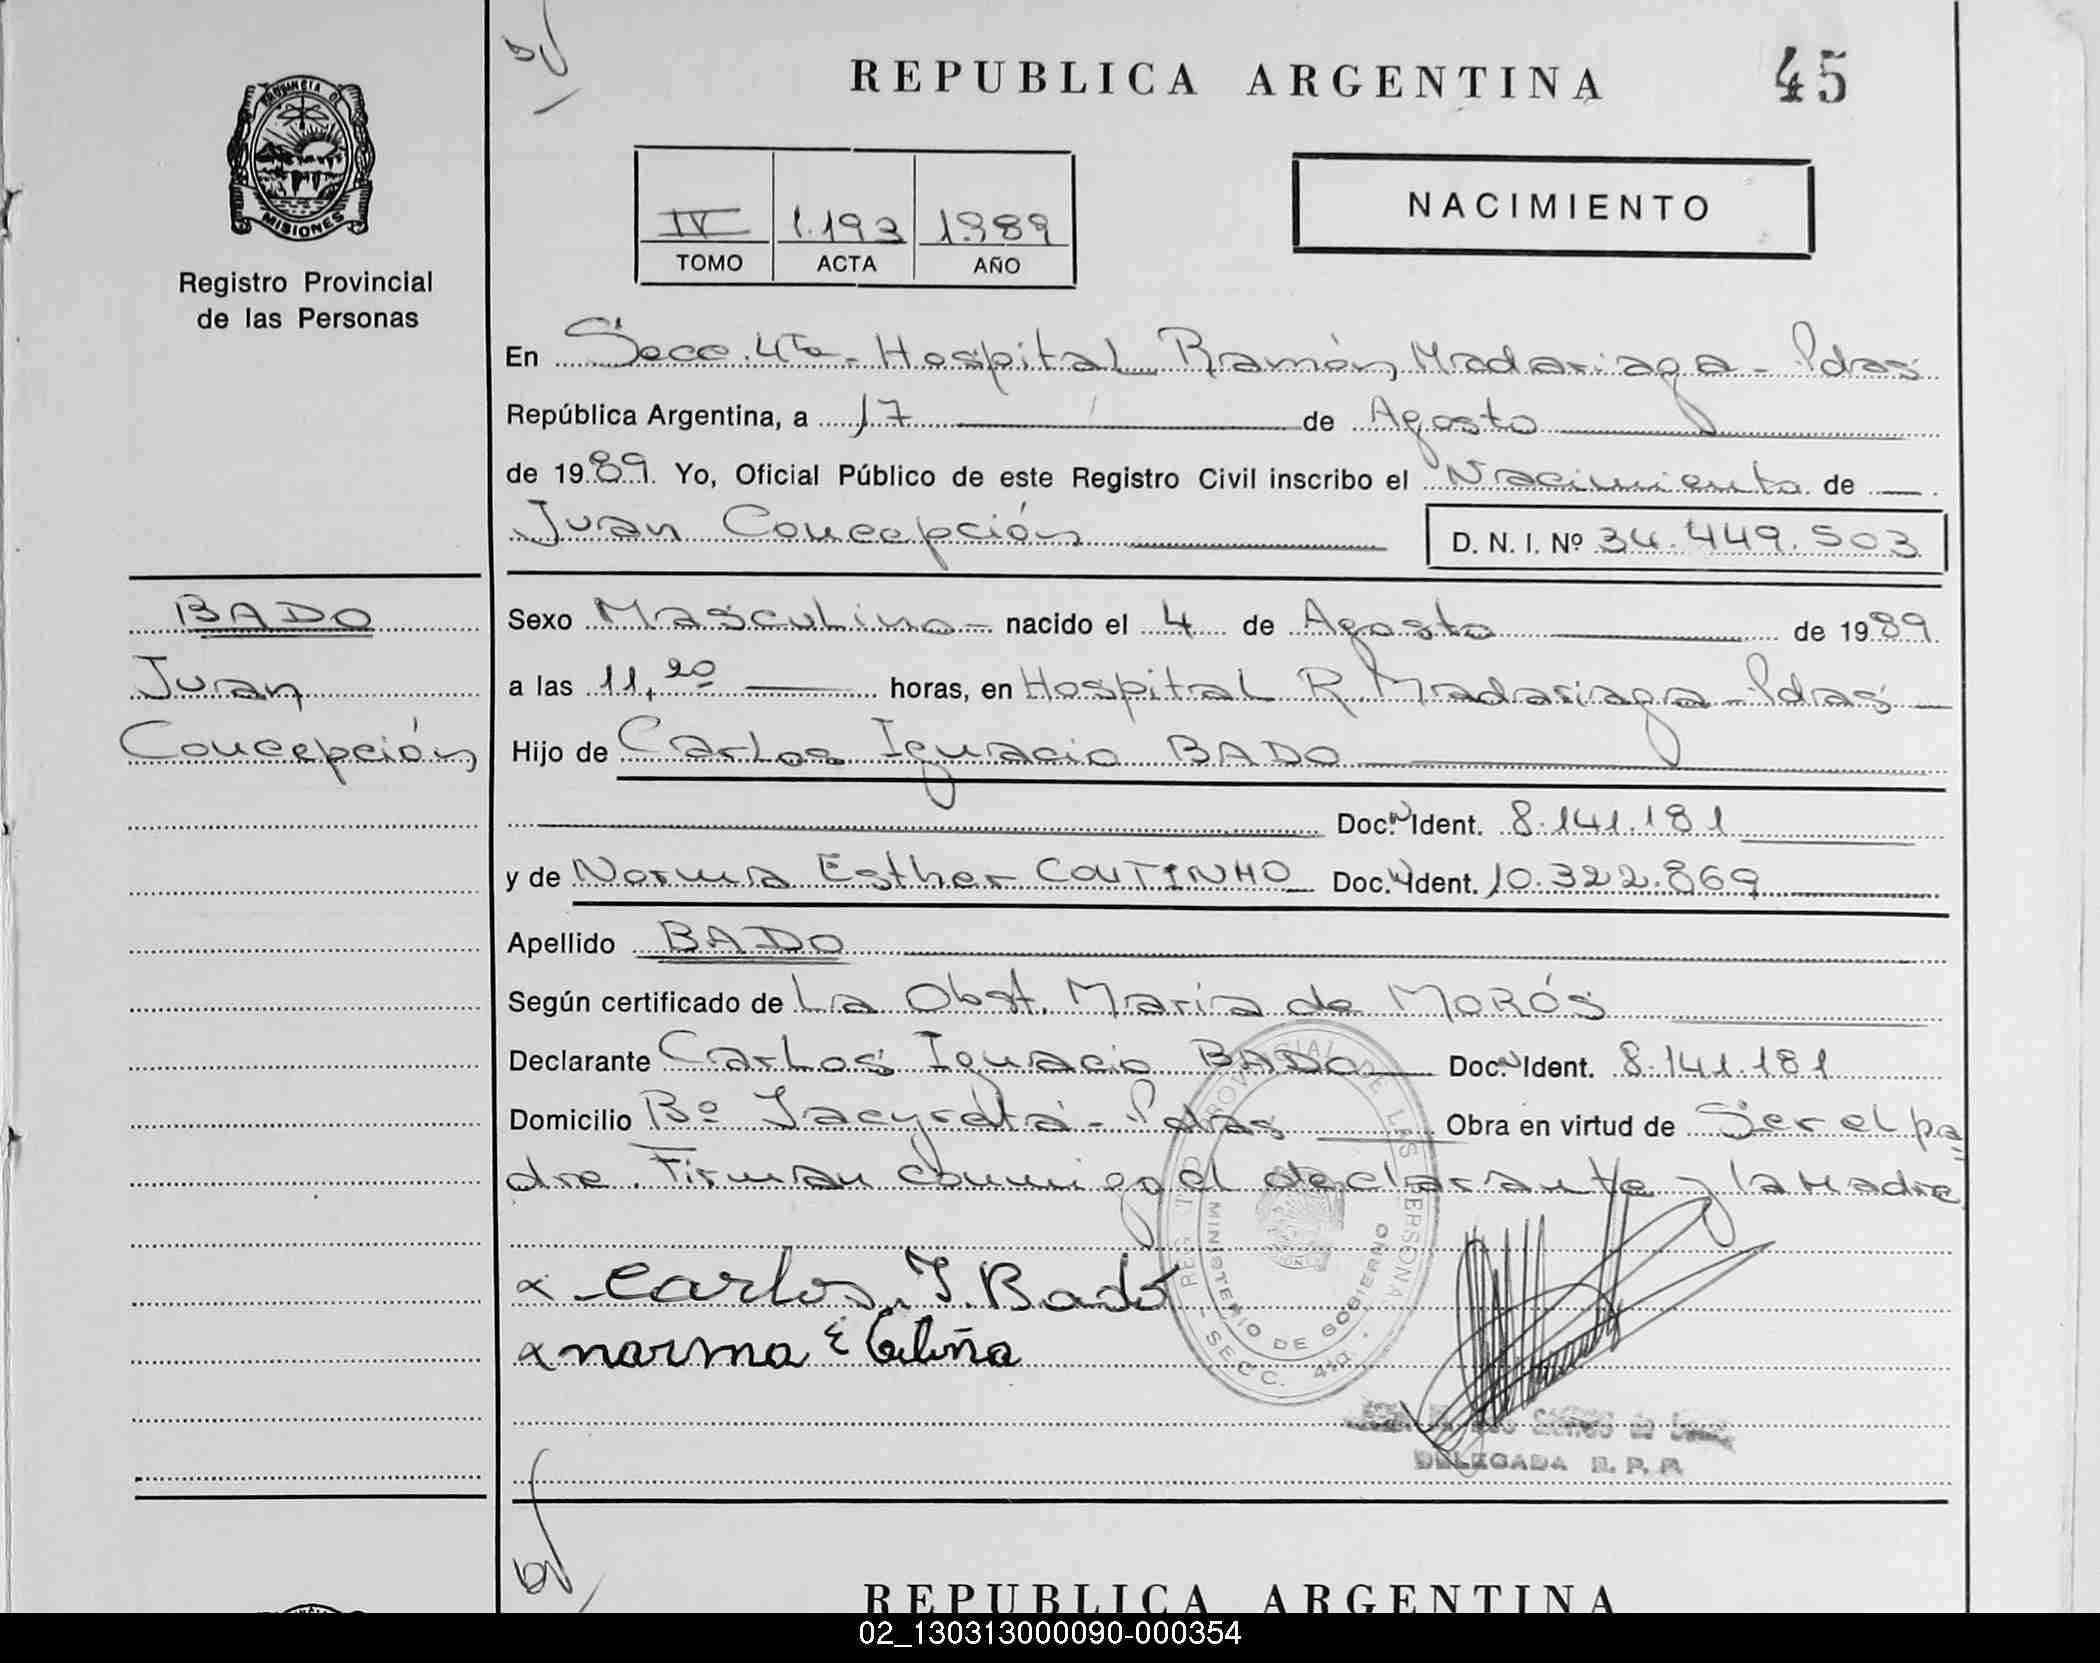 REPUBLICA ARGENTINA
45
PROVINCIA DE
MISIONES
Registro Provincial
de las Personas
IV 1.193 1989
TOMO ACTA AÑO
NACIMIENTO
En Secc. 4ta. Hospital Ramón Madariaga - Pdas
República Argentina, a 17 de Agosto
de 1989. Yo, Oficial Público de este Registro Civil inscribo el Nacimiento de
Juan Concepción
D. N. I. Nº 34.449.503
BADO
Juan
Concepción
Sexo Masculino - nacido el 4 de Agosto de 1989
a las 11,20 horas, en Hospital R Madariaga - Pdas
Hijo de Carlos Ignacio BADO
Doc. Ident. 8.141.181
y de Norma Esther COUTINHO Doc. Ident. 10.322.869
Apellido BADO
Según certificado de La Obst. María de MORÓS
Declarante Carlos Ignacio BADO Doc. Ident. 8.141.181
Domicilio Bº Yacyretá - Pdas Obra en virtud de Ser el pa
dre. Firman conmigo el declarante y la Madre
x Carlos. I. Bado
x norma E
REGISTRO PROVINCIAL DE LAS PERSONAS
MINISTERIO DE GOBIERNO
SECC. 4ta.
DELEGADA R. P. P.
REPUBLICA ARGENTINA
02_130313000090-000354